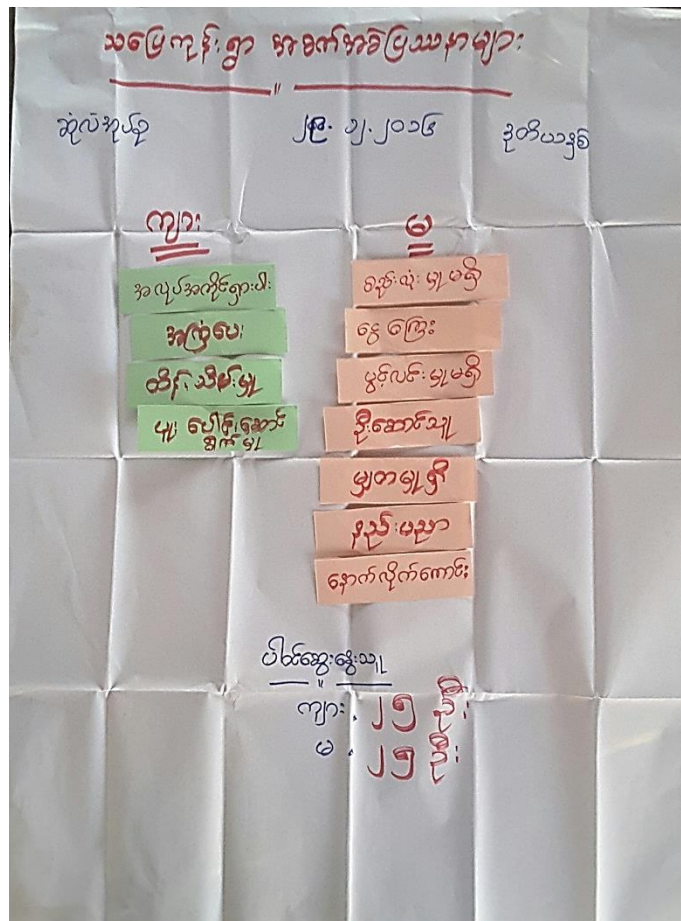 သပြေကုန်းရွာ အခက်အခဲပြဿနာများ
ဆုံလံအုပ်စု ၂၉. ၁၂. ၂၀၁၆ ဒုတိယနှစ်
ကျား
မ
အလုပ်အကိုင်ရှားပါး
အကြံပေး
ထိန်းသိမ်းမှု
ပူးပေါင်းဆောင်ရွက်မှု
စည်းလုံးမှုမရှိ
ငွေကြေး
ပွင့်လင်းမှုမရှိ
ဦးဆောင်သူ
မျှတမှုရှိ
နည်းပညာ
နောက်လိုက်ကောင်း
ပါဝင်ဆွေးနွေးသူ
ကျား . ၂၅ ဦး
မ . ၂၅ ဦး